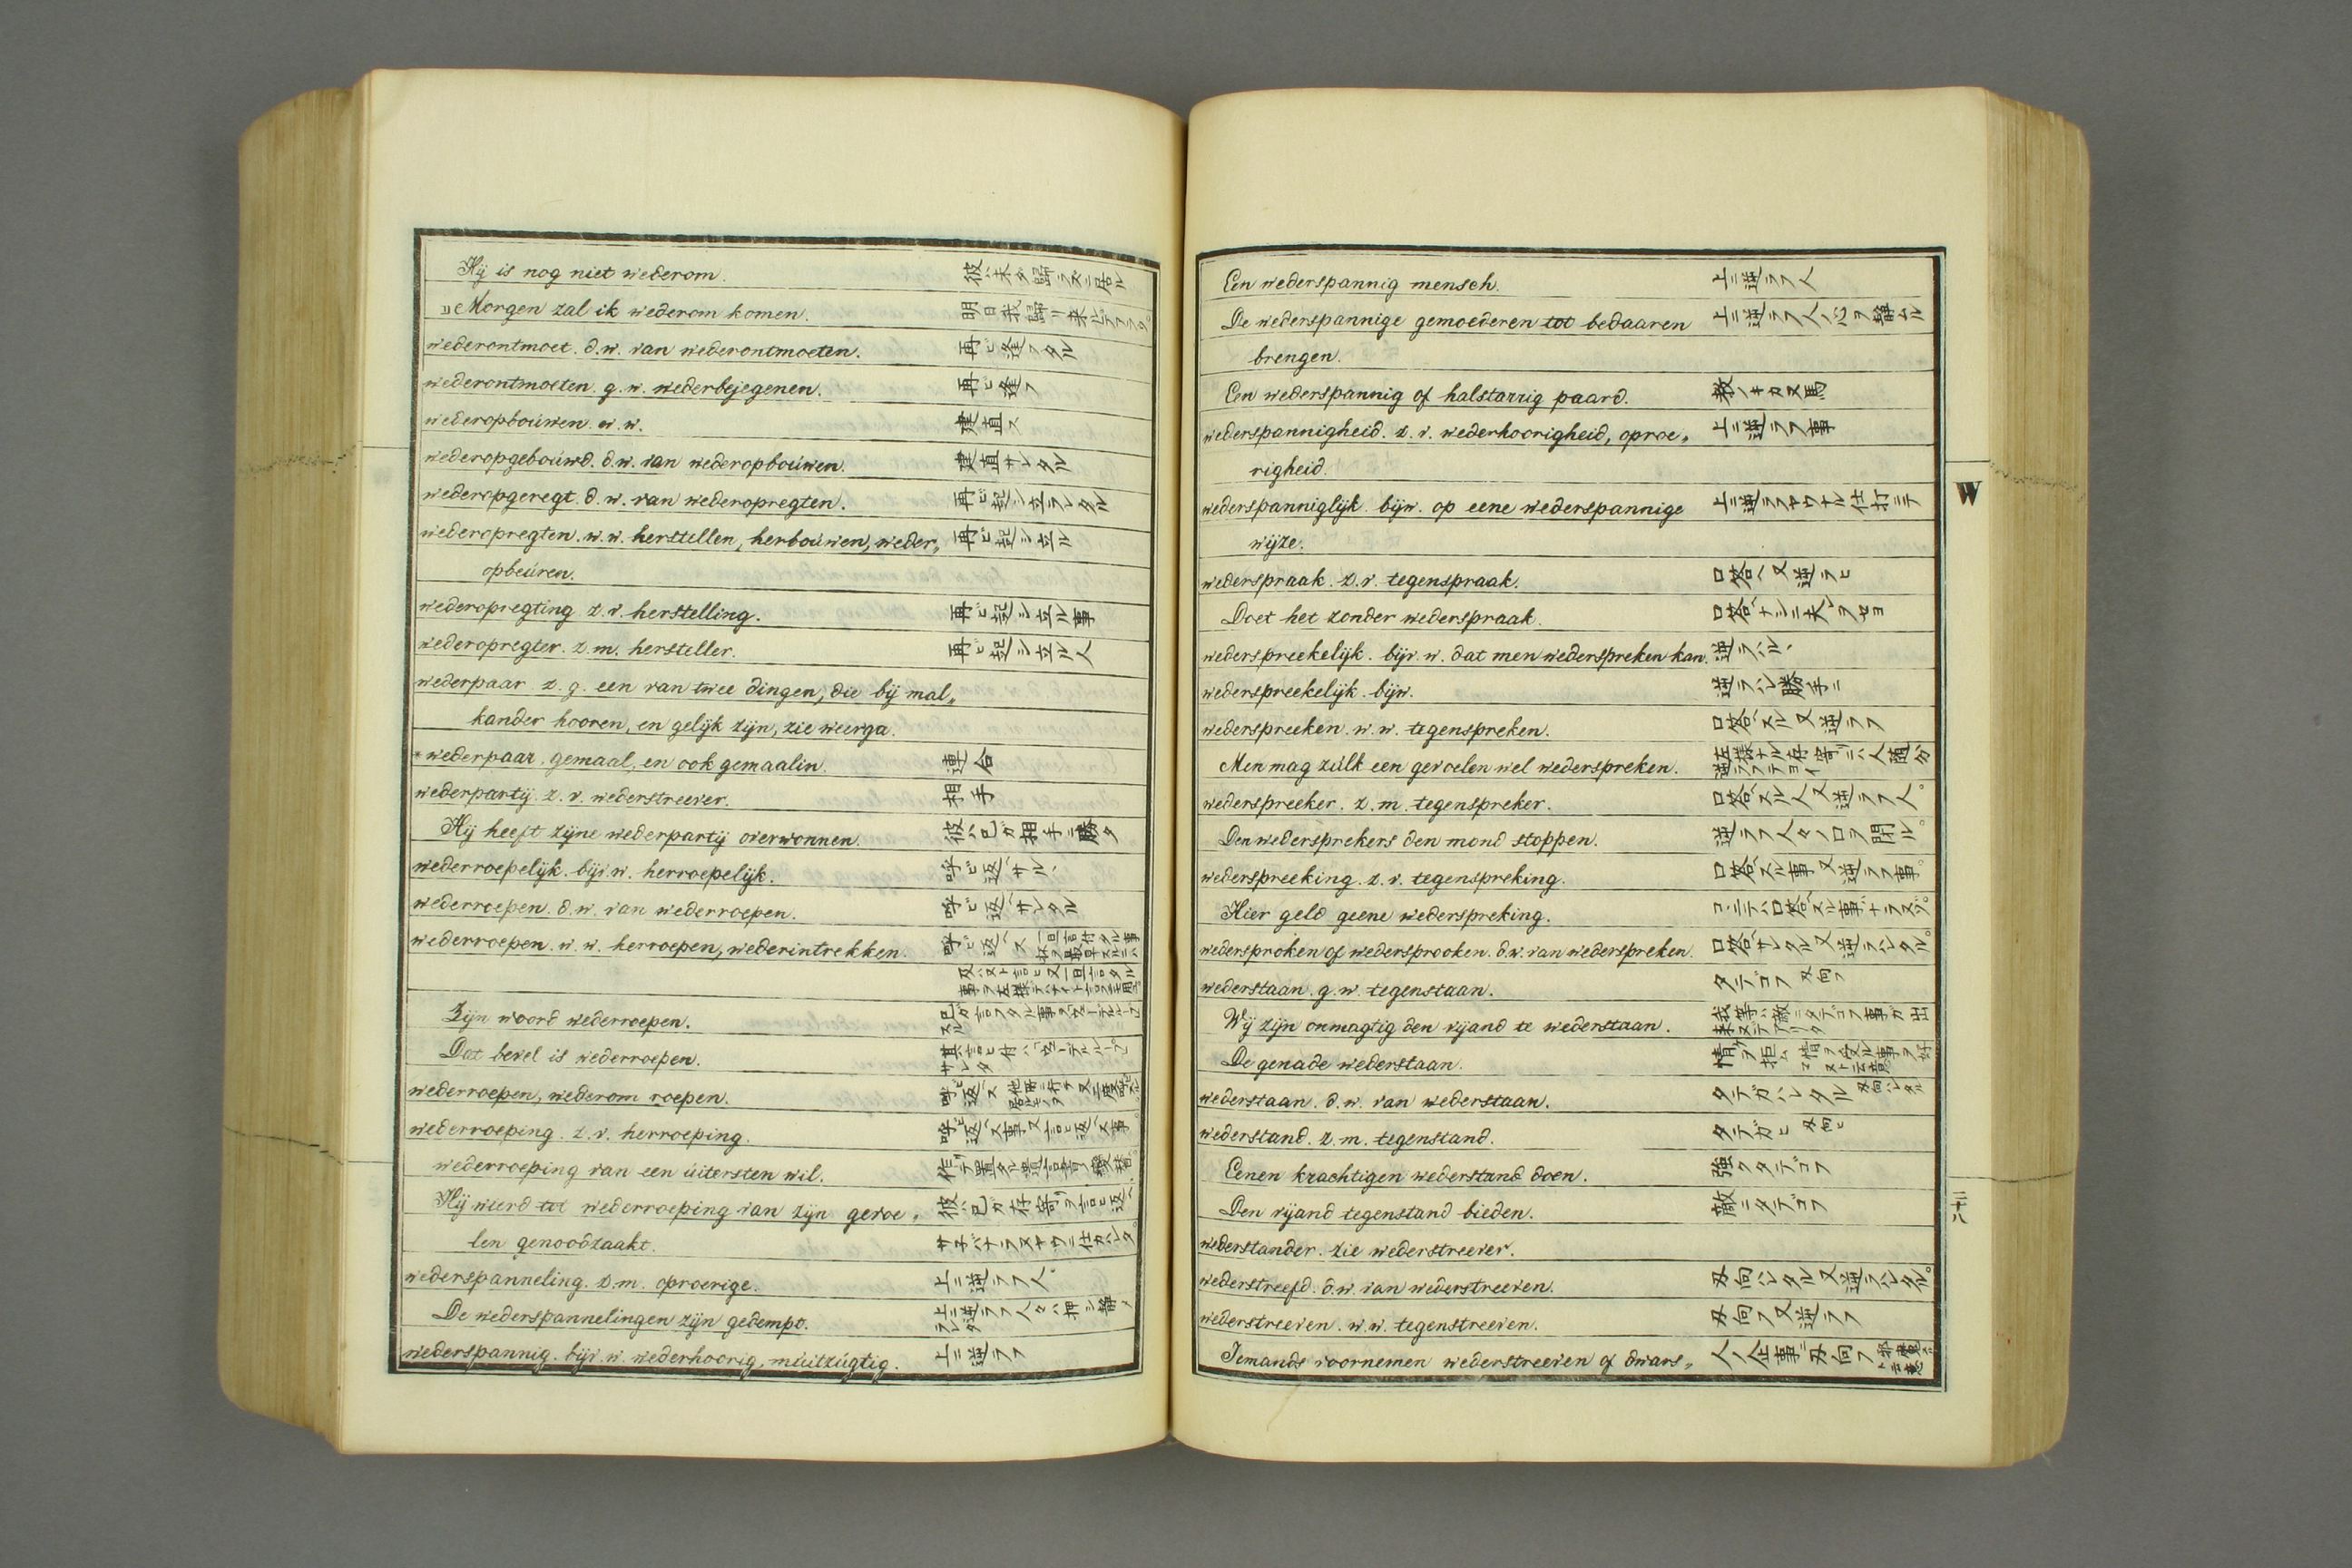 Hij is nog niet wederom. 彼ハ未タ歸ラズニ居ル
„Morgen zal ik wederom komen. 明日我歸リ來ルデアラフ
wederontmoet. d.w. van wederontmoeten. 再ビ逢フタル
wederontmoeten. g.w. wederbejegenen. 再ビ逢フ
wederopboúwen. w.w. 建直ス
wederopgeboúwd. d.w. van wederopboúwen. 建直サレタル
wederopgeregt. d.w. van wederopregten. 再ビ起シ立ラレタル
wederopregten. w.w. herstellen, herboúwen, weder„ 再ビ起シ立ル
opbeúren.
wederopregting z.v. herstelling. 再ビ起シ立ル事
wederopregter. z.m. hersteller. 再ビ起シ立ル人
wederpaar z.g. een van twee dingen, die bij mal„
kander hooren, en gelijk zijn, zie weerga.
*wederpaar. gemaal, en ook gemaalin. 連合
wederpartij. z.v. wederstreever. 相手
Hij heeft zijne wederpartij overwonnen. 彼ハ己ガ相手ニ勝タ
wederroepelijk. bijv.w. herroepelijk. 呼ビ返サル丶
wederroepen. d.w. van wederroepen. 呼ビ返サレタル
wederroepen. w.w. herroepen, wederintrekken. 呼ビ返ス
Zijn woord wederroepen.
Dat bevel is wederroepen.
wederroepen, wederom roepen. 呼ビ返ス
wederroeping. z.v. herroeping. 呼ビ返ス事又言ヒ返ス事
wederroeping van een úitersten wil.
Hij wierd tot wederroeping van zijn gevoe„ 彼ハ己ガ存寄ヲ言ヒ返
len genoodzaakt. サネバナラヌヤウニ仕カレタ
wederspanneling. z.m. oproerige. 上ニ逆ラフ人
De wederspannelingen zijn gedempt. 上ニ逆ラフ人々ハ押シ静メラレタ
wederspannig. bijv.w. wederhoorig, múitzúgtig. 上ニ逆ラフ
Een wederspannig mensch. 上ニ逆ラフ人
De wederspannige gemoederen tot bedaaren 上ニ逆ラフ人ノ心ヲ静ムル
brengen.
Een wederspannig of halstarrig paard. 教ノキカヌ馬
wederspannigheid. z.v. wederhoorigheid, oproe„ 上ニ逆ラフ事
righeid.
wederspanniglijk. bijw. op eene wederspannige 上ニ逆ラフヤウナル仕打ニテ
wijze.
wederspraak. z.v. tegenspraak. 口答ヘ又逆ラヒ
Doet het zonder wederspraak. 口答ナシニ夫レヲセヨ
wederspreekelijk. bijv.w. dat men wederspreken kan. 逆ラハル丶
wederspreekelijk. bijw. 逆ラハレ勝手ニ
wederspreeken. w.w. tegenspreken. 口答スル又逆ラフ
Men mag zúlk een gevoelen wel wederspreken. 左様ナル存寄リニハ人随分逆ラフテヨイ
wederspreeker. z.m. tegenspreker. 口答スル人又逆ラフ人。
Den wedersprekers den mond stoppen. 逆ラフ人々ノ口ヲ閉ル。
wederspreeking. z.v. tegenspreking. 口答スル事又逆ラフ事。
Hier geld geene wederspreking. コヽニテハ口答スル事ナラヌゾ。
wedersproken of wedersprooken. d.w. van wederspreken. 口答サレタル又逆ラハレタル。
wederstaan. g.w. tegenstaan. タテヅコフ 刃向フ
Wij zijn onmagtig den vijand te wederstaan. 我等ハ敵ニタテゴフ事ガ出来ヌデアリタ
De genade wederstaan.
wederstaan. d.w. van wederstaan. タテガハレタル 刃向ハレタル
wederstand. z.m. tegenstand. タテガヒ 刃向ヒ
Eenen krachtigen wederstand doen. 強クタテゴフ
Den vijand tegenstand bieden. 敵ニタテゴフ
wederstander. zie wederstreever.
wederstreefd. d.w. van wederstreeven. 刃向ハレタル又逆ラハレタル。
wederstreeven. w.w. tegenstreeven. 刃向フ又逆ラフ
Iemands voornemen wederstreeven of dwars„ 人ノ企事ニ刃向フ
W
二十六